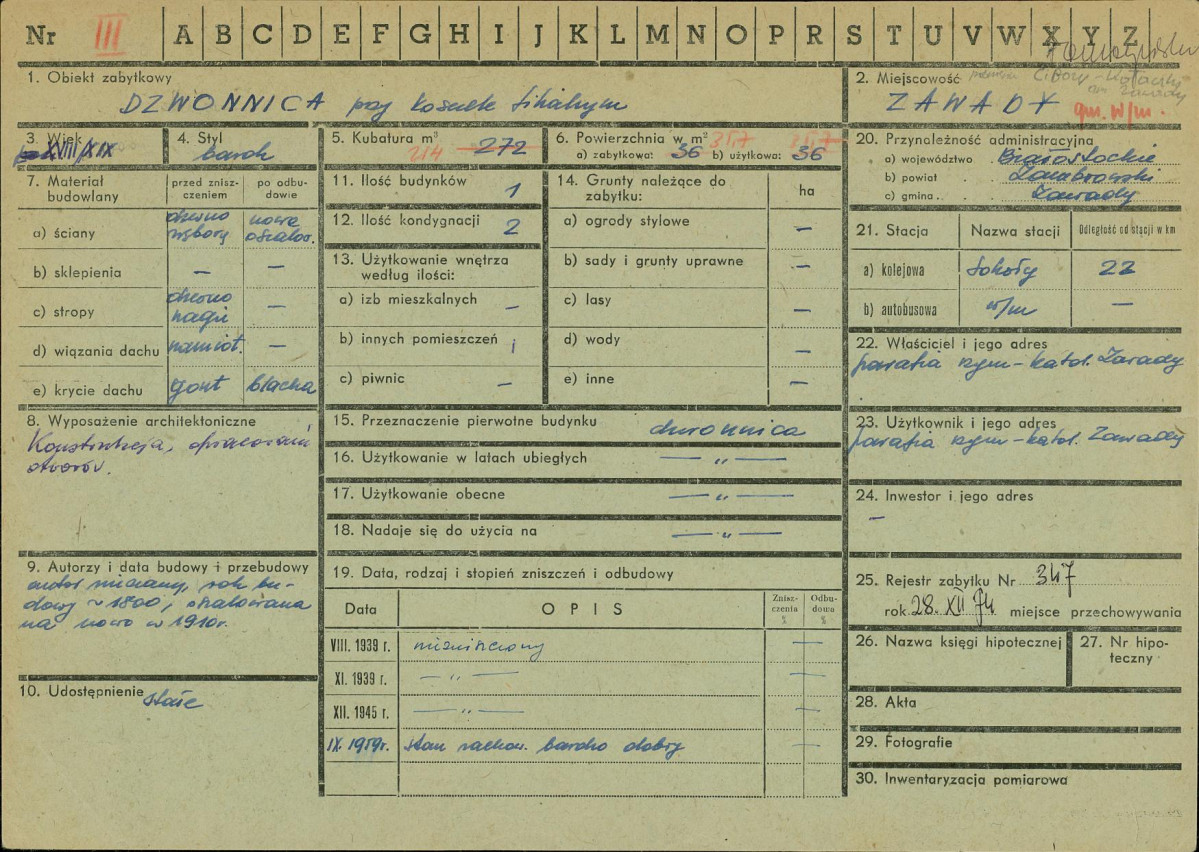 Nr III A B C D E F G H I J K L M N O P R S T U V W X Y Z
1. Obiekt zabytkowy
DZWONNICA przy kościele filialnym
2. Miejscowość
ZAWADY gm. w/m.
3. Wiek
XVIII/XIX
4. Styl
barok
5. Kubatura m³
214 272
6. Powierzchnia w m² 35,7 35,7
a) zabytkowa: 36 b) użytkowa: 36
7. Materiał budowlany
przed zniszczeniem
po odbudowie
a) ściany
drewno
wybory
nowe
oszalow.
b) sklepienia – –
c) stropy
drewno
nagie
–
d) wiązania dachu namiot. –
e) krycie dachu gont blacha
8. Wyposażenie architektoniczne
Konstrukcja, opracowanie
otworów.
9. Autorzy i data budowy i przebudowy
autor nieznany, rok bu-
dowy ~ 1800, oszalowana
na nowo w 1910r.
10. Udostępnienie stałe
11. Ilość budynków 1
12. Ilość kondygnacji 2
13. Użytkowanie wnętrza
według ilości:
a) izb mieszkalnych –
b) innych pomieszczeń 1
c) piwnic –
14. Grunty należące do
zabytku:
ha
a) ogrody stylowe –
b) sady i grunty uprawne –
c) lasy –
d) wody –
e) inne –
15. Przeznaczenie pierwotne budynku dzwonnica
16. Użytkowanie w latach ubiegłych — „ —
17. Użytkowanie obecne — „ —
18. Nadaje się do użycia na — „ —
19. Data, rodzaj i stopień zniszczeń i odbudowy
Data OPIS Zniszczenia % Odbudowa %
VIII. 1939 r. niezniszczony —
XI. 1939 r. — „ — —
XII. 1945 r. — „ — —
IX. 1959r. stan zachow. bardzo dobry —
20. Przynależność administracyjna
a) województwo Białostockie
b) powiat Zambrowski
c) gmina Zawady
21. Stacja Nazwa stacji Odległość od stacji w km
a) kolejowa Sokoły 22
b) autobusowa w/m –
22. Właściciel i jego adres
parafia rzym-katol. Zawady
23. Użytkownik i jego adres
parafia rzym-katol. Zawady
24. Inwestor i jego adres
–
25. Rejestr zabytku Nr 347
rok 28. XII 74 miejsce przechowywania
26. Nazwa księgi hipotecznej
27. Nr hipo-
teczny
28. Akta
29. Fotografie
30. Inwentaryzacja pomiarowa